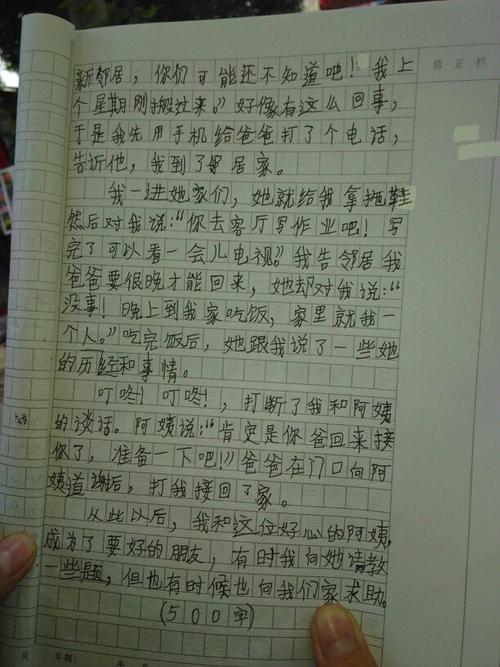 修正栏
新邻居，你们可能还不知道吧！我上
个星期刚搬过来。”好像有这么回事，
于是我先用手机给爸爸打了个电话，
告诉他，我到了邻居家。
我一进她家们，她就给我拿拖鞋
然后对我说：“你去客厅写作业吧！写
完了可以看一会儿电视”我告邻居我
爸爸要很晚才能回来，她却对我说：“
没事！晚上到我家吃饭，家里就我一
个人。”吃完饭后，她跟我说了一些她
的历经和事情。
叮咚！叮咚！，打断了我和阿姨
的谈话。阿姨说：“肯定是你爸回来接
你了，准备一下吧！”爸爸在门口向阿
姨道谢后，打我接回了家。
从此以后，我和这位好心的阿姨，
成为了要好的朋友，有时我向她请教
一些题，但也有时候也向我们家求助。
(500字)
日期：